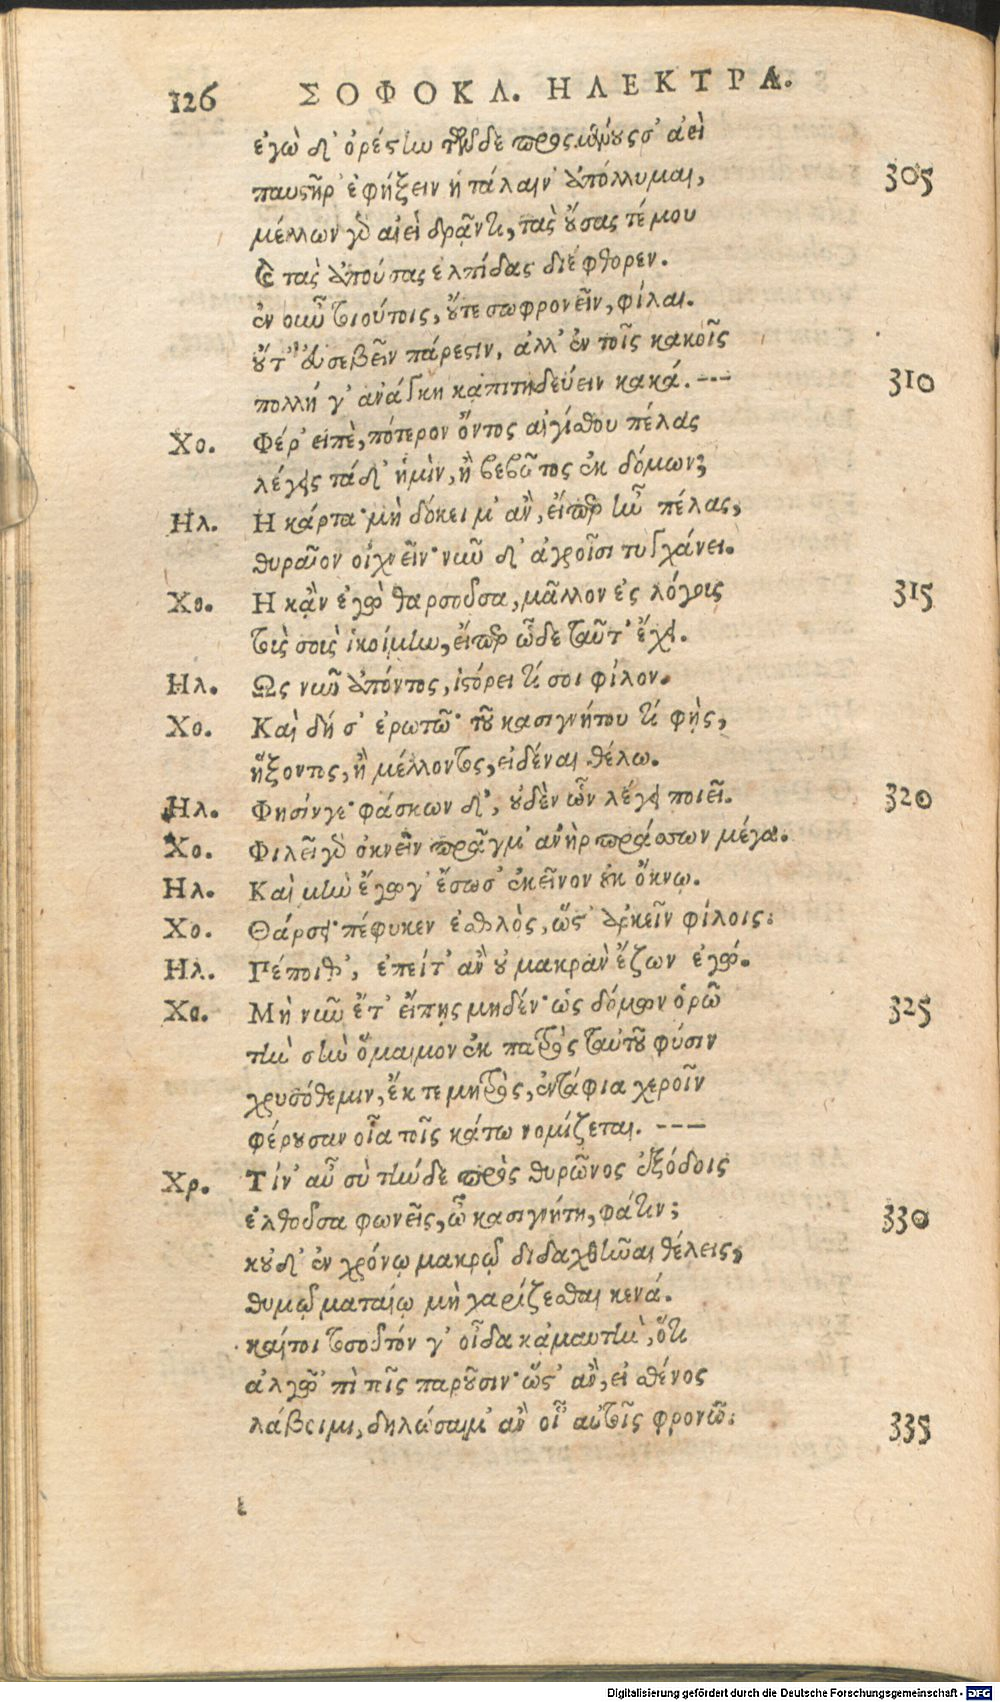 126 ΣΟΦΟΚΛ. ΗΛΕΚΤΡΑ.
ἐγὼ δ' ὀρέστην τῶνδε προσμένουσ' ἀεὶ
παυστῆρ' ἐφήξειν ἡ τάλαιν' ἀπόλλυμαι, 305
μέλλων γὰρ αἰεὶ δρᾷν τι, τὰς οὔσας τέ μου
καὶ τὰς ἀπούσας ἐλπίδας διέφθορεν.
ἐν οὖν τοιούτοις, οὔτε σωφρονεῖν, φίλαι.
οὔτ' εὐσεβεῖν πάρεστιν, ἀλλ' ἐν τοῖς κακοῖς
πολλή γ' ἀνάγκη κἀπιτηδεύειν κακά. --- 310
Χο. Φέρ' εἰπὲ, πότερον ὄντος αἰγίσθου πέλας
λέγεις τάδ' ἡμὶν, ἢ βεβῶτος ἐκ δόμων;
Ηλ. Η κάρτα· μὴ δόκει μ' ἂν, εἴπερ ἦν πέλας,
θυραῖον οἰχνεῖν· νῦν δ' ἀγροῖσι τυγχάνει.
Χο. Η κἂν ἐγὼ θαρσοῦσα, μᾶλλον ἐς λόγοις 315
τοὺς σοὺς ἱκοίμην, εἴπερ ὧδε ταῦτ' ἔχει.
Ηλ. Ως νῦν ἀπόντος, ἱστόρει τί σοι φίλον.
Χο. Καὶ δή σ' ἐρωτῶ· τοῦ κασιγνήτου τί φῂς,
ἥξοντος, ἢ μέλλοντος, εἰδέναι θέλω.
Ηλ. Φησίν γε· φάσκων δ', οὐδὲν ὧν λέγει ποιεῖ. 320
Χο. Φιλεῖ γὰρ ὀκνεῖν πρᾶγμ' ἀνὴρ πράσσων μέγα.
Ηλ. Καὶ μὴν ἔγωγ' ἔσωσ' ἐκεῖνον οὐκ ὄκνῳ.
Χο. Θάρσει· πέφυκεν ἐσθλὸς, ὥστ' ἀρκεῖν φίλοις.
Ηλ. Πέποιθ', ἐπεὶ τ' ἂν οὐ μακρὰν ἔζων ἐγώ.
Χο. Μὴ νῦν ἔτ' εἴπῃς μηδέν· ὡς δόμων ὁρῶ 325
τὴν σὴν ὅμαιμον ἐκ πατρὸς ταὐτοῦ φύσιν
χρυσόθεμιν, ἔκ τε μητρὸς, ἐντάφια χεροῖν
φέρουσαν οἷα τοῖς κάτω νομίζεται. ---
Χρ. Τίν' αὖ σὺ τήνδε πρὸς θυρῶνος ἐξόδοις
ἐλθοῦσα φωνεῖς, ὦ κασιγνήτη, φάτιν; 330
κοὐδ' ἐν χρόνῳ μακρῷ διδαχθῆναι θέλεις,
θυμῷ ματαίῳ μὴ χαρίζεσθαι κενά.
καίτοι τοσοῦτόν γ' οἶδα κἀμαυτὴν, ὅτι
ἀλγῶ 'πὶ τοῖς παροῦσιν· ὥστ' ἂν, εἰ σθένος
λάβοιμι, δηλώσαιμ' ἂν οἷ' αὐτοῖς φρονῶ. 335
Digitalisierung gefördert durch die Deutsche Forschungsgemeinschaft - DFG